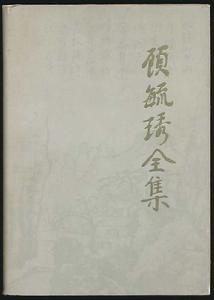 顾毓琇全集